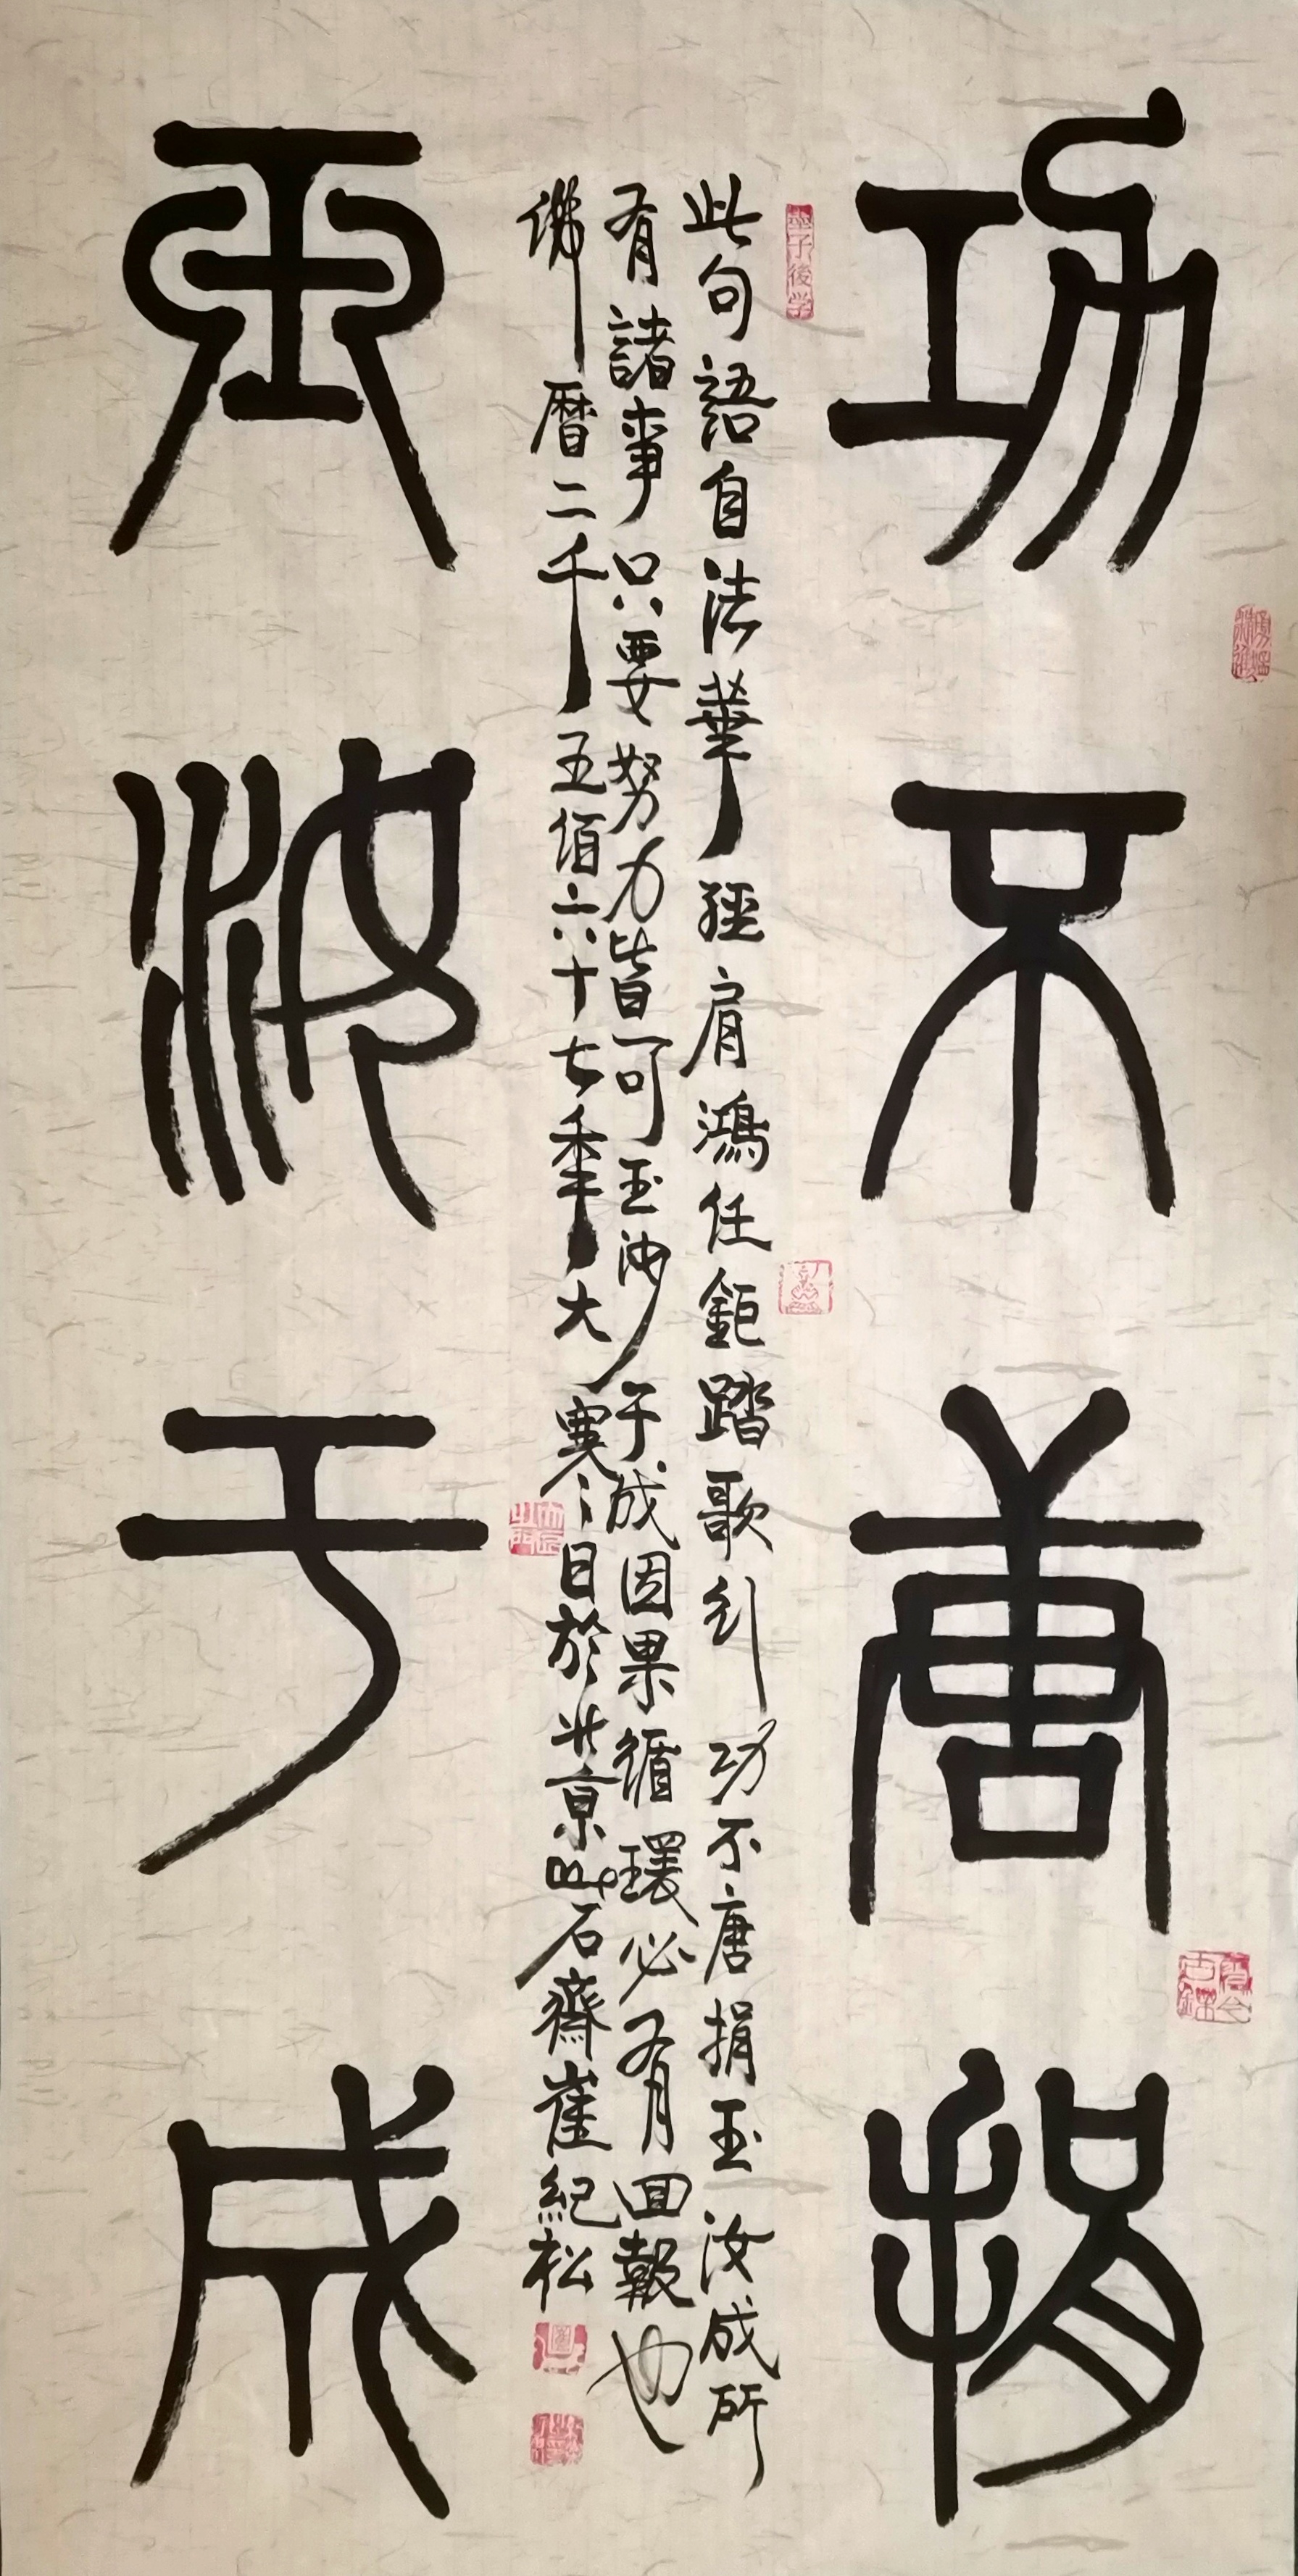 功不唐捐
此句語自法華經肩鴻任鉅踏歌行功不唐捐玉汝成所
有諸事只要努力皆可玉汝于成因果循環必有囬報也
佛暦二千五佰六十七秊大寒之日於北京石齋崔紀松
玉汝于成